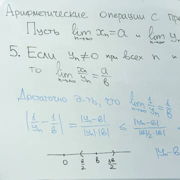 Арифметические операции с пре
Пусть lim xₙ = a и lim yₙ
n→∞ n→∞
5. Если yₙ ≠ 0 при всех n и
то lim xₙ/yₙ = a/в
n→∞
Достаточно д-ть, что lim 1/yₙ = 1/в
n→∞
|1/yₙ - 1/в| = |yₙ-в|/|yₙ||в| ≤ |yₙ-в|
|yₙ-в|
0 в/2 в 3в/2